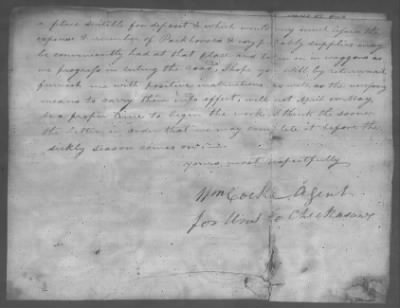 a place suitable for deposit & which
expence & number of Packhorses &
be conveniently had at that place and on in waggons as
we progress in cuting the road. I hope you will by return mail
furnish me with positive instructions as well as the necessary
means to carry them into effect, will not April or May
be a proper time to begin the work. I think the sooner
the better in order that we may complete it before the
sickly season comes on
yours most respectfully
Wm Cocke Agent
for to Chickasaws